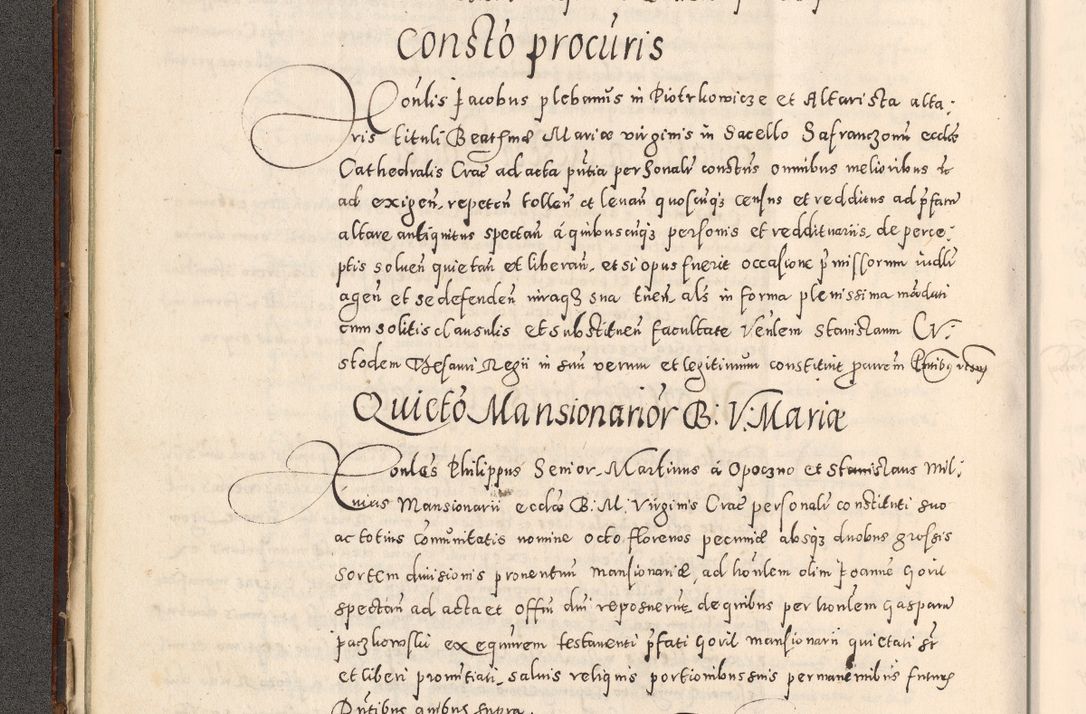 Constō procuris
Honlis Jacobus plebanus in Piotrkowicze et Altarista alta:
ris tituli Beatissimæ Mariæ virginis in Sacello Safranczonū eccl̄æ
Cathedralis Crac̄ ad acta pn̄tia personalr̄ constn̄s omnibus melioribus etc
ad exigen̄, repeten̄ tollen̄ et levan̄ quoscunq3 census et redditus ad pn̄fatū
altare antiquitus spectan̄ á quibuscunq3 personis et reddituariis, de perce:
ptis solven̄ quietan̄ et liberan̄, et si opus fuerit occasione p̄missorum iudlr̄
agen̄ et se defenden̄ iuraq3 sua tuen̄ als̄ in forma plenissima mādati
cum solitis clausulis et substituen̄ facultate Venlem Stanislaum CV:
stodem Thesauri Regii in suū verum et legitimum constituit pcurem Pn̄tibus
Quietō Mansionariōr B: V: Mariæ
Honles Philippus Senior, Martinus á Opoczno et Stanislaus Mil:
Mansionarii eccl̄æ B: M. Virginis Crac̄ personalr̄ constituti suo
ac totius cōmunitatis nomine octo florenos pecuniæ absq3 duobus grossis
sortem divisionis proventuū mansionariæ, ad honlem olim Joannē Goril
spectan̄ ad acta et offīn dni reposuerūt de quibus per honlem Gasparū
Jaczkowski exequūrem testamenti pn̄fati Goril mansionarii quietati sr̄
et liberi promittati, salvis reliquis portionibus suis permanentibus
Pn̄tibus quibus supra.